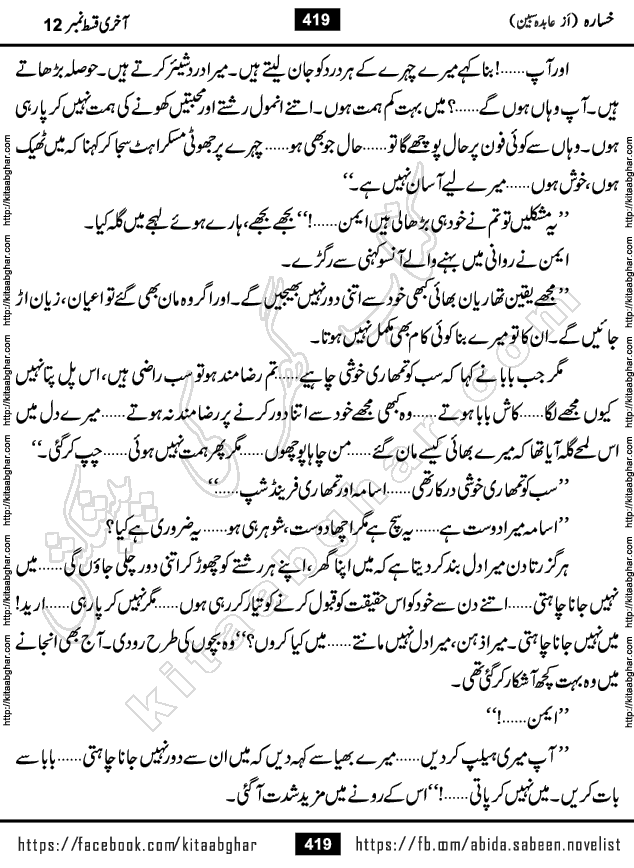 خسارہ (از عابدہ سبین)
419
آخری قسط نمبر 12
اور آپ......! بنا کہے میرے چہرے کے ہر درد کو جان لیتے ہیں۔ میرا درد شیئر کرتے ہیں۔ حوصلہ بڑھاتے
ہیں۔ آپ وہاں ہوں گے......؟ میں بہت کم ہمت ہوں۔ اتنے انمول رشتے اور محبتیں کھونے کی ہمت نہیں کر پا رہی
ہوں۔ وہاں سے کوئی فون پر حال پوچھے گا تو...... حال جو بھی ہو...... چہرے پر جھوٹی مسکراہٹ سجا کر کہنا کہ میں ٹھیک
ہوں، خوش ہوں...... میرے لیے آسان نہیں ہے۔‘‘
’’یہ مشکلیں تو تم نے خود ہی بڑھا لی ہیں ایمن......!‘‘ بجھے بجھے، ہارے ہوئے لہجے میں گلہ کیا۔
ایمن نے روانی میں بہنے والے آنسو کہنی سے رگڑے۔
’’مجھے یقین تھا ریان بھائی کبھی خود سے اتنی دور نہیں بھیجیں گے۔ اور اگر وہ مان بھی گئے تو اعیان، زیان اڑ
جائیں گے۔ ان کا تو میرے بنا کوئی کام بھی مکمل نہیں ہوتا۔
مگر جب بابا نے کہا کہ سب کو تمھاری خوشی چاہیے......تم رضا مند ہو تو سب راضی ہیں، اس پل پتا نہیں
کیوں مجھے لگا...... کاش بابا ہوتے...... وہ کبھی مجھے خود سے اتنا دور کرنے پر رضا مند نہ ہوتے...... میرے دل میں
اس لمحے گلہ آیا تھا کہ میرے بھائی کیسے مان گئے...... من چاہا پوچھوں...... مگر پھر ہمت نہیں ہوئی...... چپ کر گئی۔‘‘
’’سب کو تمھاری خوشی درکار تھی...... اسامہ اور تمھاری فرینڈ شپ......‘‘
’’اسامہ میرا دوست ہے...... یہ سچ ہے مگر اچھا دوست، شوہر ہی ہو...... یہ ضروری ہے کیا؟
ہر گزرتا دن میرا دل بند کر دیتا ہے کہ میں اپنا گھر، اپنے ہر رشتے کو چھوڑ کر اتنی دور چلی جاؤں گی...... میں
نہیں جانا چاہتی...... اتنے دن سے خود کو اس حقیقت کو قبول کرنے کو تیار کر رہی ہوں...... مگر نہیں کر پا رہی...... ارید!
میں نہیں جانا چاہتی۔ میرا ذہن، میرا دل نہیں مانتے...... میں کیا کروں؟‘‘ وہ بچوں کی طرح رو دی۔ آج بھی انجانے
میں وہ بہت کچھ آشکار کر گئی تھی۔
’’ایمن......!‘‘
’’آپ میری ہیلپ کر دیں...... میرے بھیا سے کہہ دیں کہ میں ان سے دور نہیں جانا چاہتی...... بابا سے
بات کریں۔ میں نہیں کر پاتی......!‘‘ اس کے رونے میں مزید شدت آ گئی۔
http://kitaabghar.com http://kitaabghar.com http://kitaabghar.com http://kitaabghar.com http://kitaabghar.com http://kitaabghar.com
http://kitaabghar.com http://kitaabghar.com http://kitaabghar.com http://kitaabghar.com http://kitaabghar.com http://kitaabghar.com
کتاب گھر کی پیشکش
kitaabghar.com
https://facebook.com/kitaabghar
419
https://fb.com/abida.sabeen.novelist